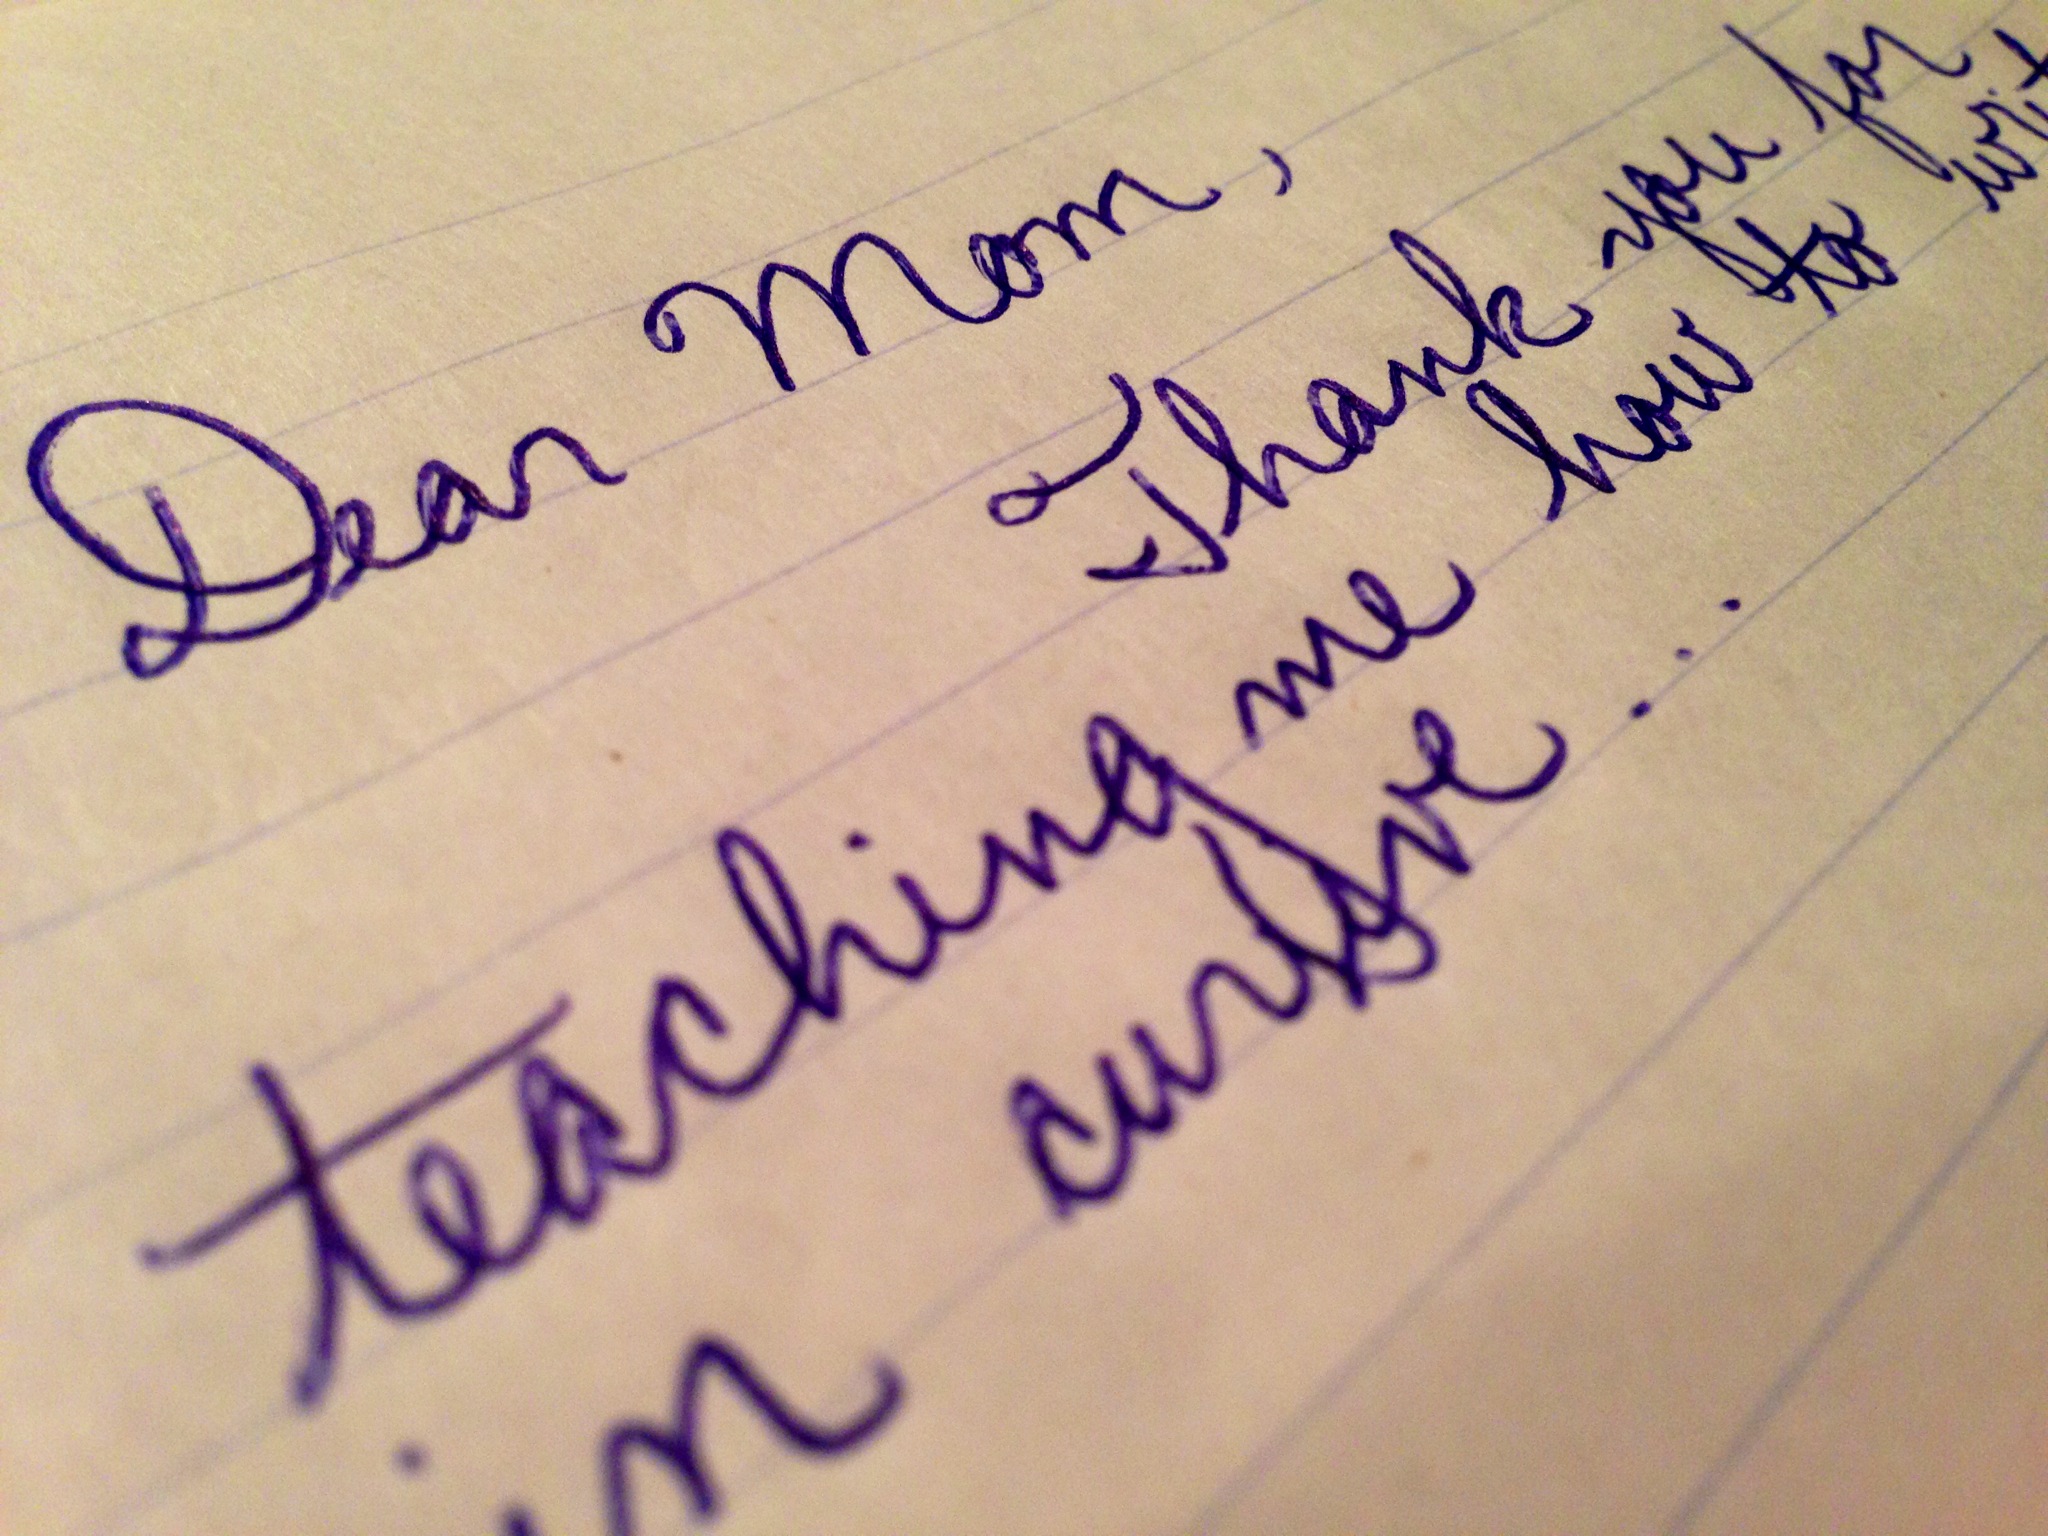 Dear Mom,
Thank you for
teaching me how to writ
in cursive...